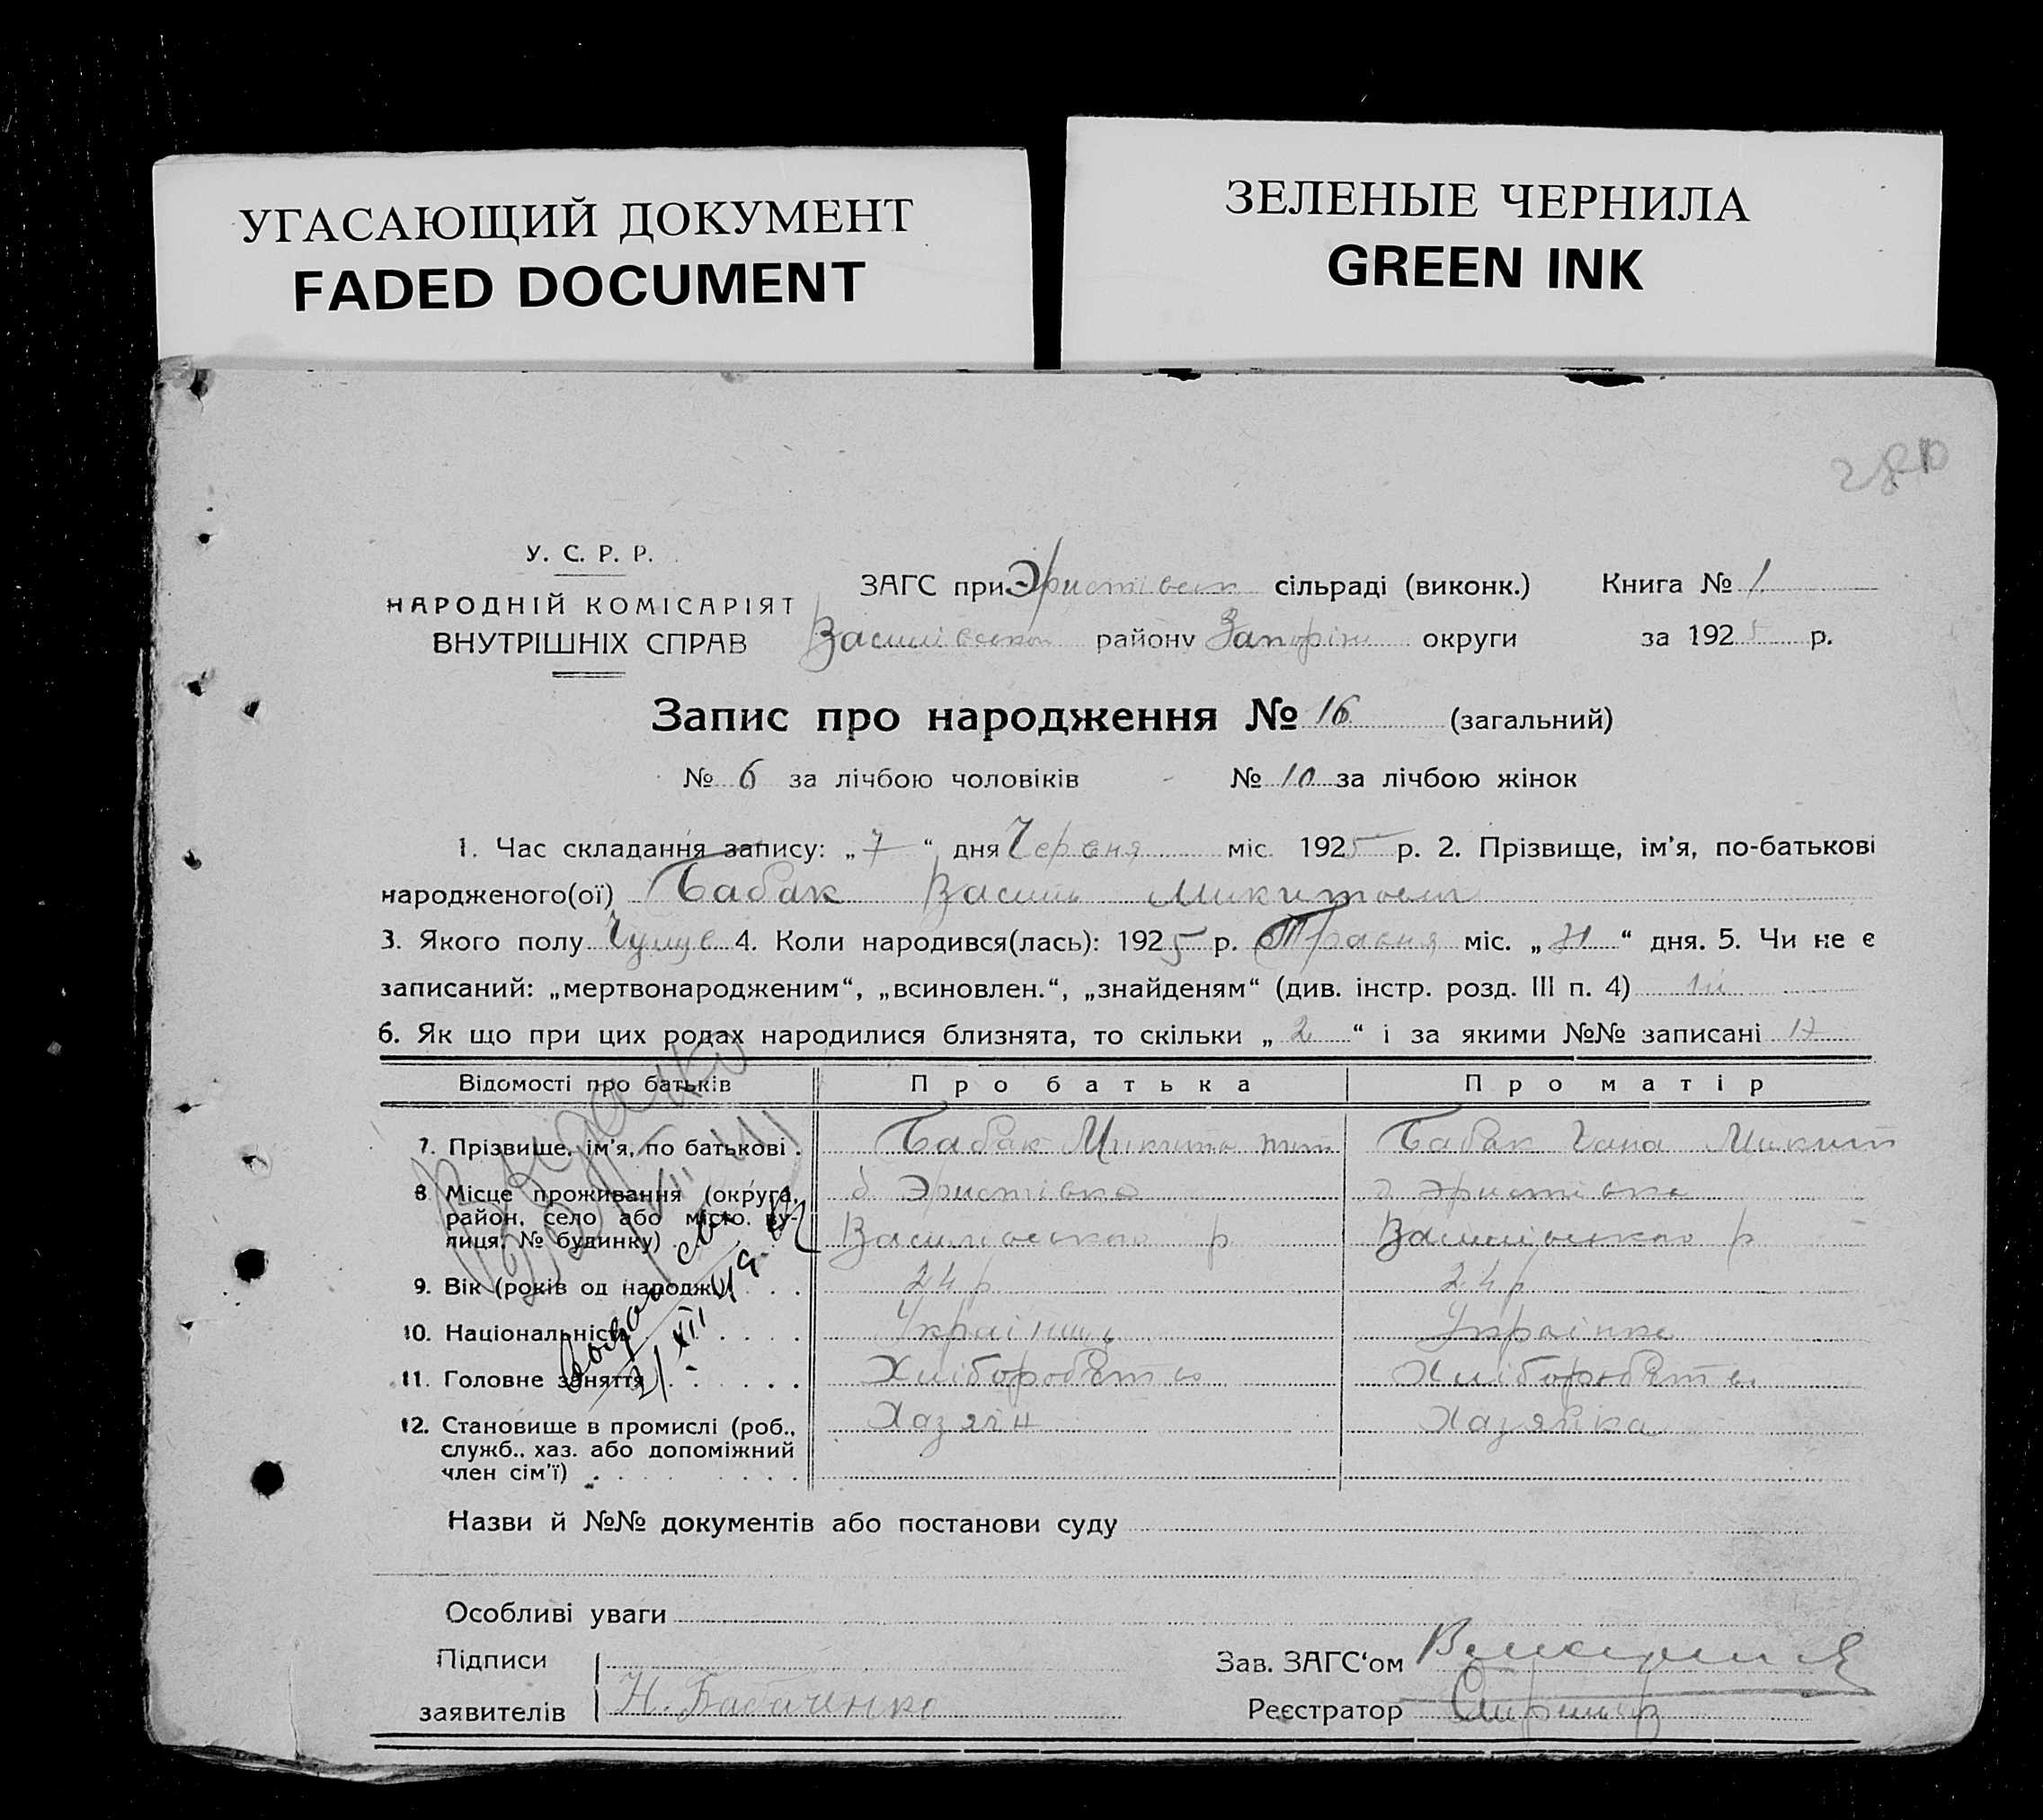 УГАСАЮЩИЙ ДОКУМЕНТ
FADED DOCUMENT
ЗЕЛЕНЫЕ ЧЕРНИЛА
GREEN INK
У. С. Р. Р.
НАРОДНІЙ КОМІСАРІЯТ
ВНУТРІШНІХ СПРАВ
ЗАГС при Эристівськ сільраді (виконк.) Книга № 1
Василівської району Запоріж округи за 1925 р.
Запис про народження № 16 (загальний)
№ 6 за лічбою чоловіків № 10 за лічбою жінок
1. Час складання запису: „7“ дня Червня міс. 1925 р. 2. Прізвище, ім'я, по-батькові
народженого(ої) Бабак Василь Микитович
3. Якого полу 4. Коли народився(лась): 1925 р. Травня міс. „31“ дня. 5. Чи не є
записаний: „мертвонародженим“, „всиновлен.“, „знайденям“ (див. інстр. розд. III п. 4) ні
6. Як що при цих родах народилися близнята, то скільки „2“ і за якими №№ записані 17
Відомості про батьків Про батька Про матір
7. Прізвище, ім'я, по батькові . Бабак Микита Бабак Ганна Микит
8. Місце проживання (округа, район, село або місто, вулиця, № будинку) Эристівка Василівського р Эристівка Василівського р
9. Вік (років од народж.) . . . 24 р 24 р
10. Національність . . . . Українець Українка
11. Головне заняття . . . . . . Хліборобство Хліборобство
12. Становище в промислі (роб., служб., хаз. або допоміжний член сім'ї) . . . . . . . . Хазяїн Хазяйка
Назви й №№ документів або постанови суду
Особливі уваги
Підписи
заявителів Н. Бабаченко
Зав. ЗАГС‘ом
Реєстратор